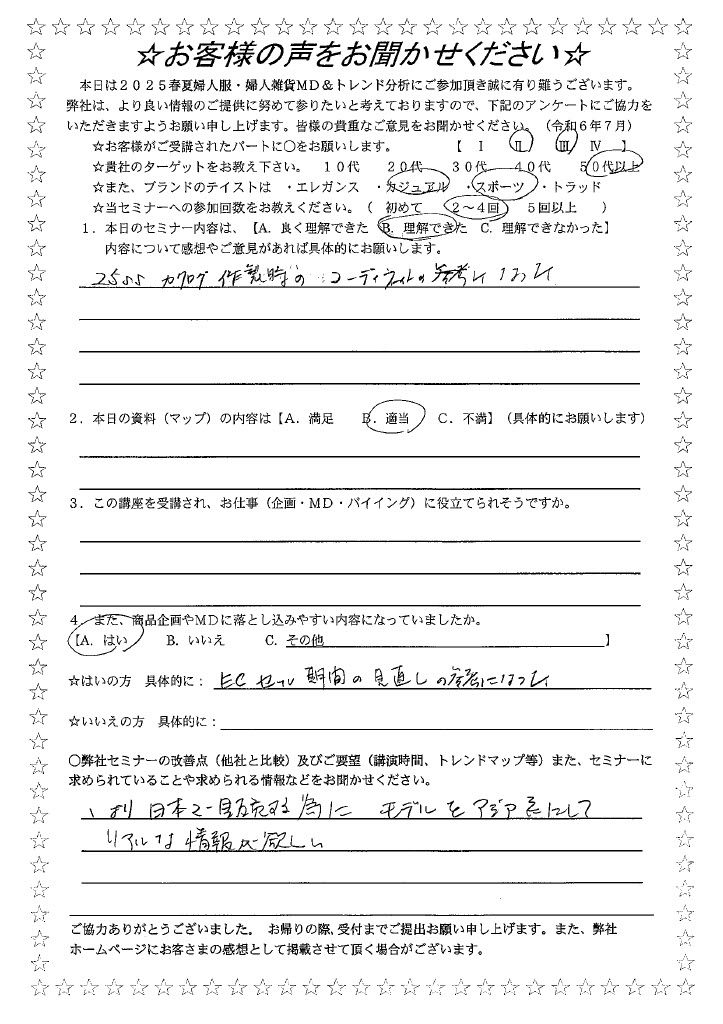 ☆お客様の声をお聞かせください☆
本日は2025春夏婦人服・婦人雑貨MD&トレンド分析にご参加頂き誠に有り難うございます。
弊社は、より良い情報のご提供に努めて参りたいと考えておりますので、下記のアンケートにご協力を
いただきますようお願い申し上げます。皆様の貴重なご意見をお聞かせください。（令和6年7月）
☆お客様がご受講されたパートに○をお願いします。 【 Ⅰ Ⅱ Ⅲ Ⅳ 】
☆貴社のターゲットをお教え下さい。 10代 20代 30代 40代 50代以上
☆また、ブランドのテイストは ・エレガンス ・カジュアル ・スポーツ ・トラッド
☆当セミナーへの参加回数をお教えください。（ 初めて 2～4回 5回以上 ）
1．本日のセミナー内容は、【A. 良く理解できた B. 理解できた C. 理解できなかった】
内容について感想やご意見があれば具体的にお願いします。
25SS カタログ 作製時の コーディネイトの参考になった
2．本日の資料（マップ）の内容は【A．満足 B．適当 C．不満】（具体的にお願いします）
3．この講座を受講され、お仕事（企画・MD・バイイング）に役立てられそうですか。
4．また、商品企画やMDに落とし込みやすい内容になっていましたか。
【A. はい B. いいえ C. その他 】
☆はいの方 具体的に： EC セール 期間の見直しの参考になった
☆いいえの方 具体的に：
○弊社セミナーの改善点（他社と比較）及びご要望（講演時間、トレンドマップ等）また、セミナーに
求められていることや求められる情報などをお聞かせください。
より 日本で 為に モデルを アジア系にして
リアルな 情報が欲しい
ご協力ありがとうございました。 お帰りの際、受付までご提出お願い申し上げます。また、弊社
ホームページにお客さまの感想として掲載させて頂く場合がございます。